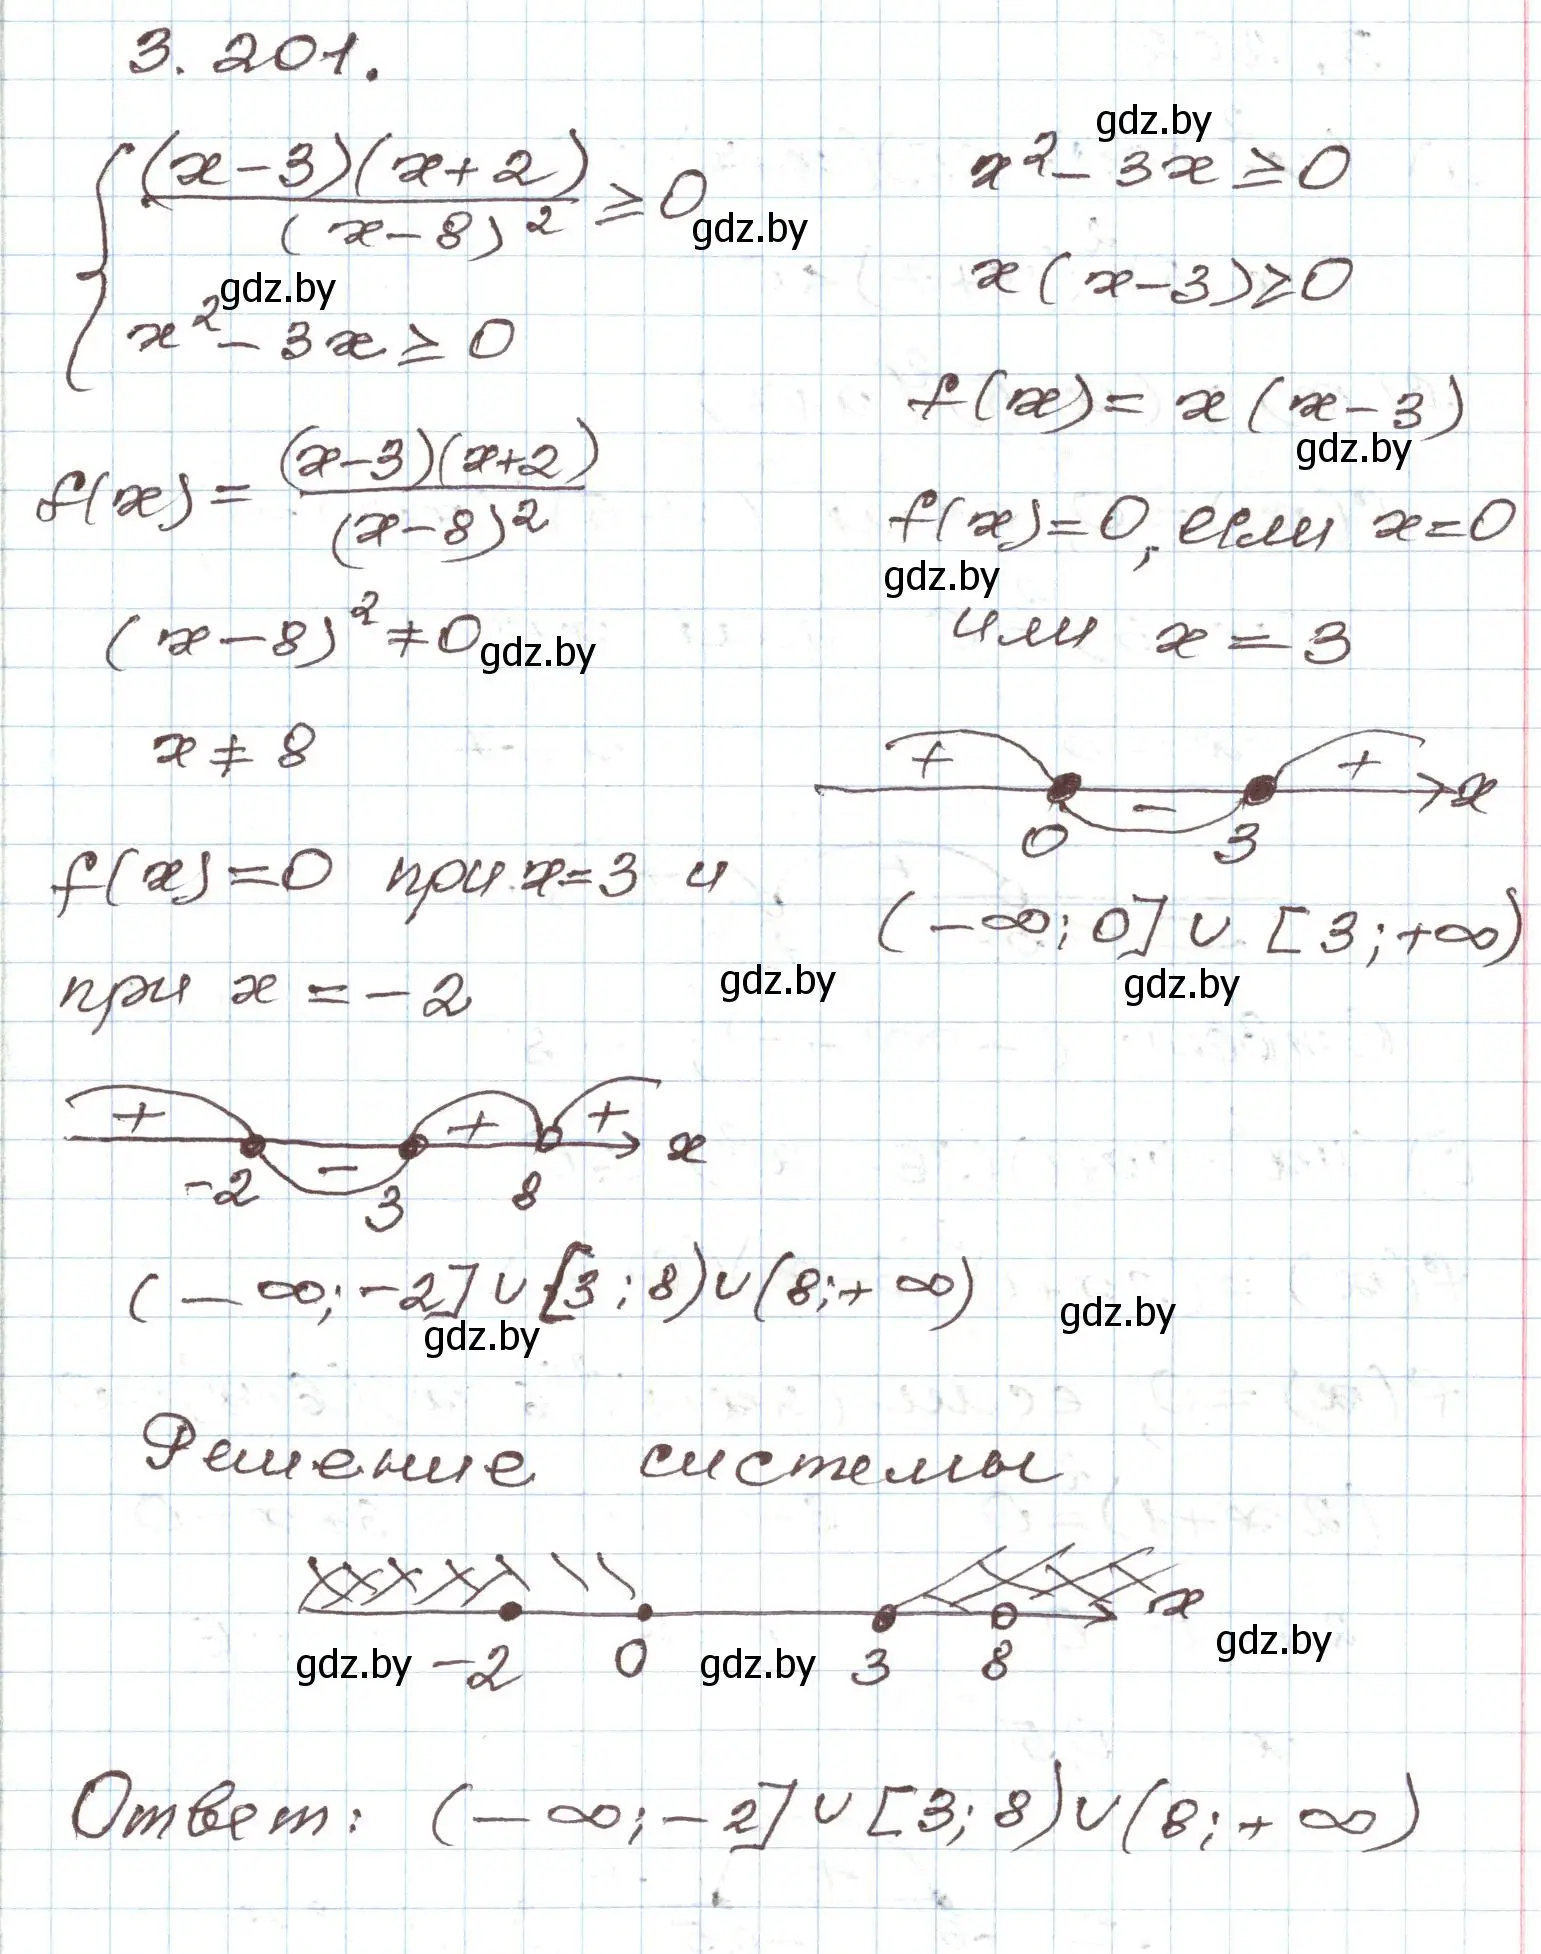 3.201.
{ (x-3)(x+2) / (x-8)² ≥ 0
gdz.by
gdz.by
x² - 3x ≥ 0
f(x) = (x-3)(x+2) / (x-8)²
(x-8)² ≠ 0
gdz.by
x ≠ 8
f(x)=0 при x=3 и
при x = -2
gdz.by
+ - + + x
-2 3 8
(-∞; -2] ∪ [3; 8) ∪ (8; +∞)
gdz.by
gdz.by
x² - 3x ≥ 0
x(x-3) ≥ 0
f(x) = x(x-3)
gdz.by
f(x)=0, если x=0
gdz.by
или x = 3
+ - + x
0 3
(-∞; 0] ∪ [3; +∞)
gdz.by
gdz.by
Решение системы
x
-2 0 3 8
gdz.by gdz.by gdz.by
Ответ: (-∞; -2] ∪ [3; 8) ∪ (8; +∞)